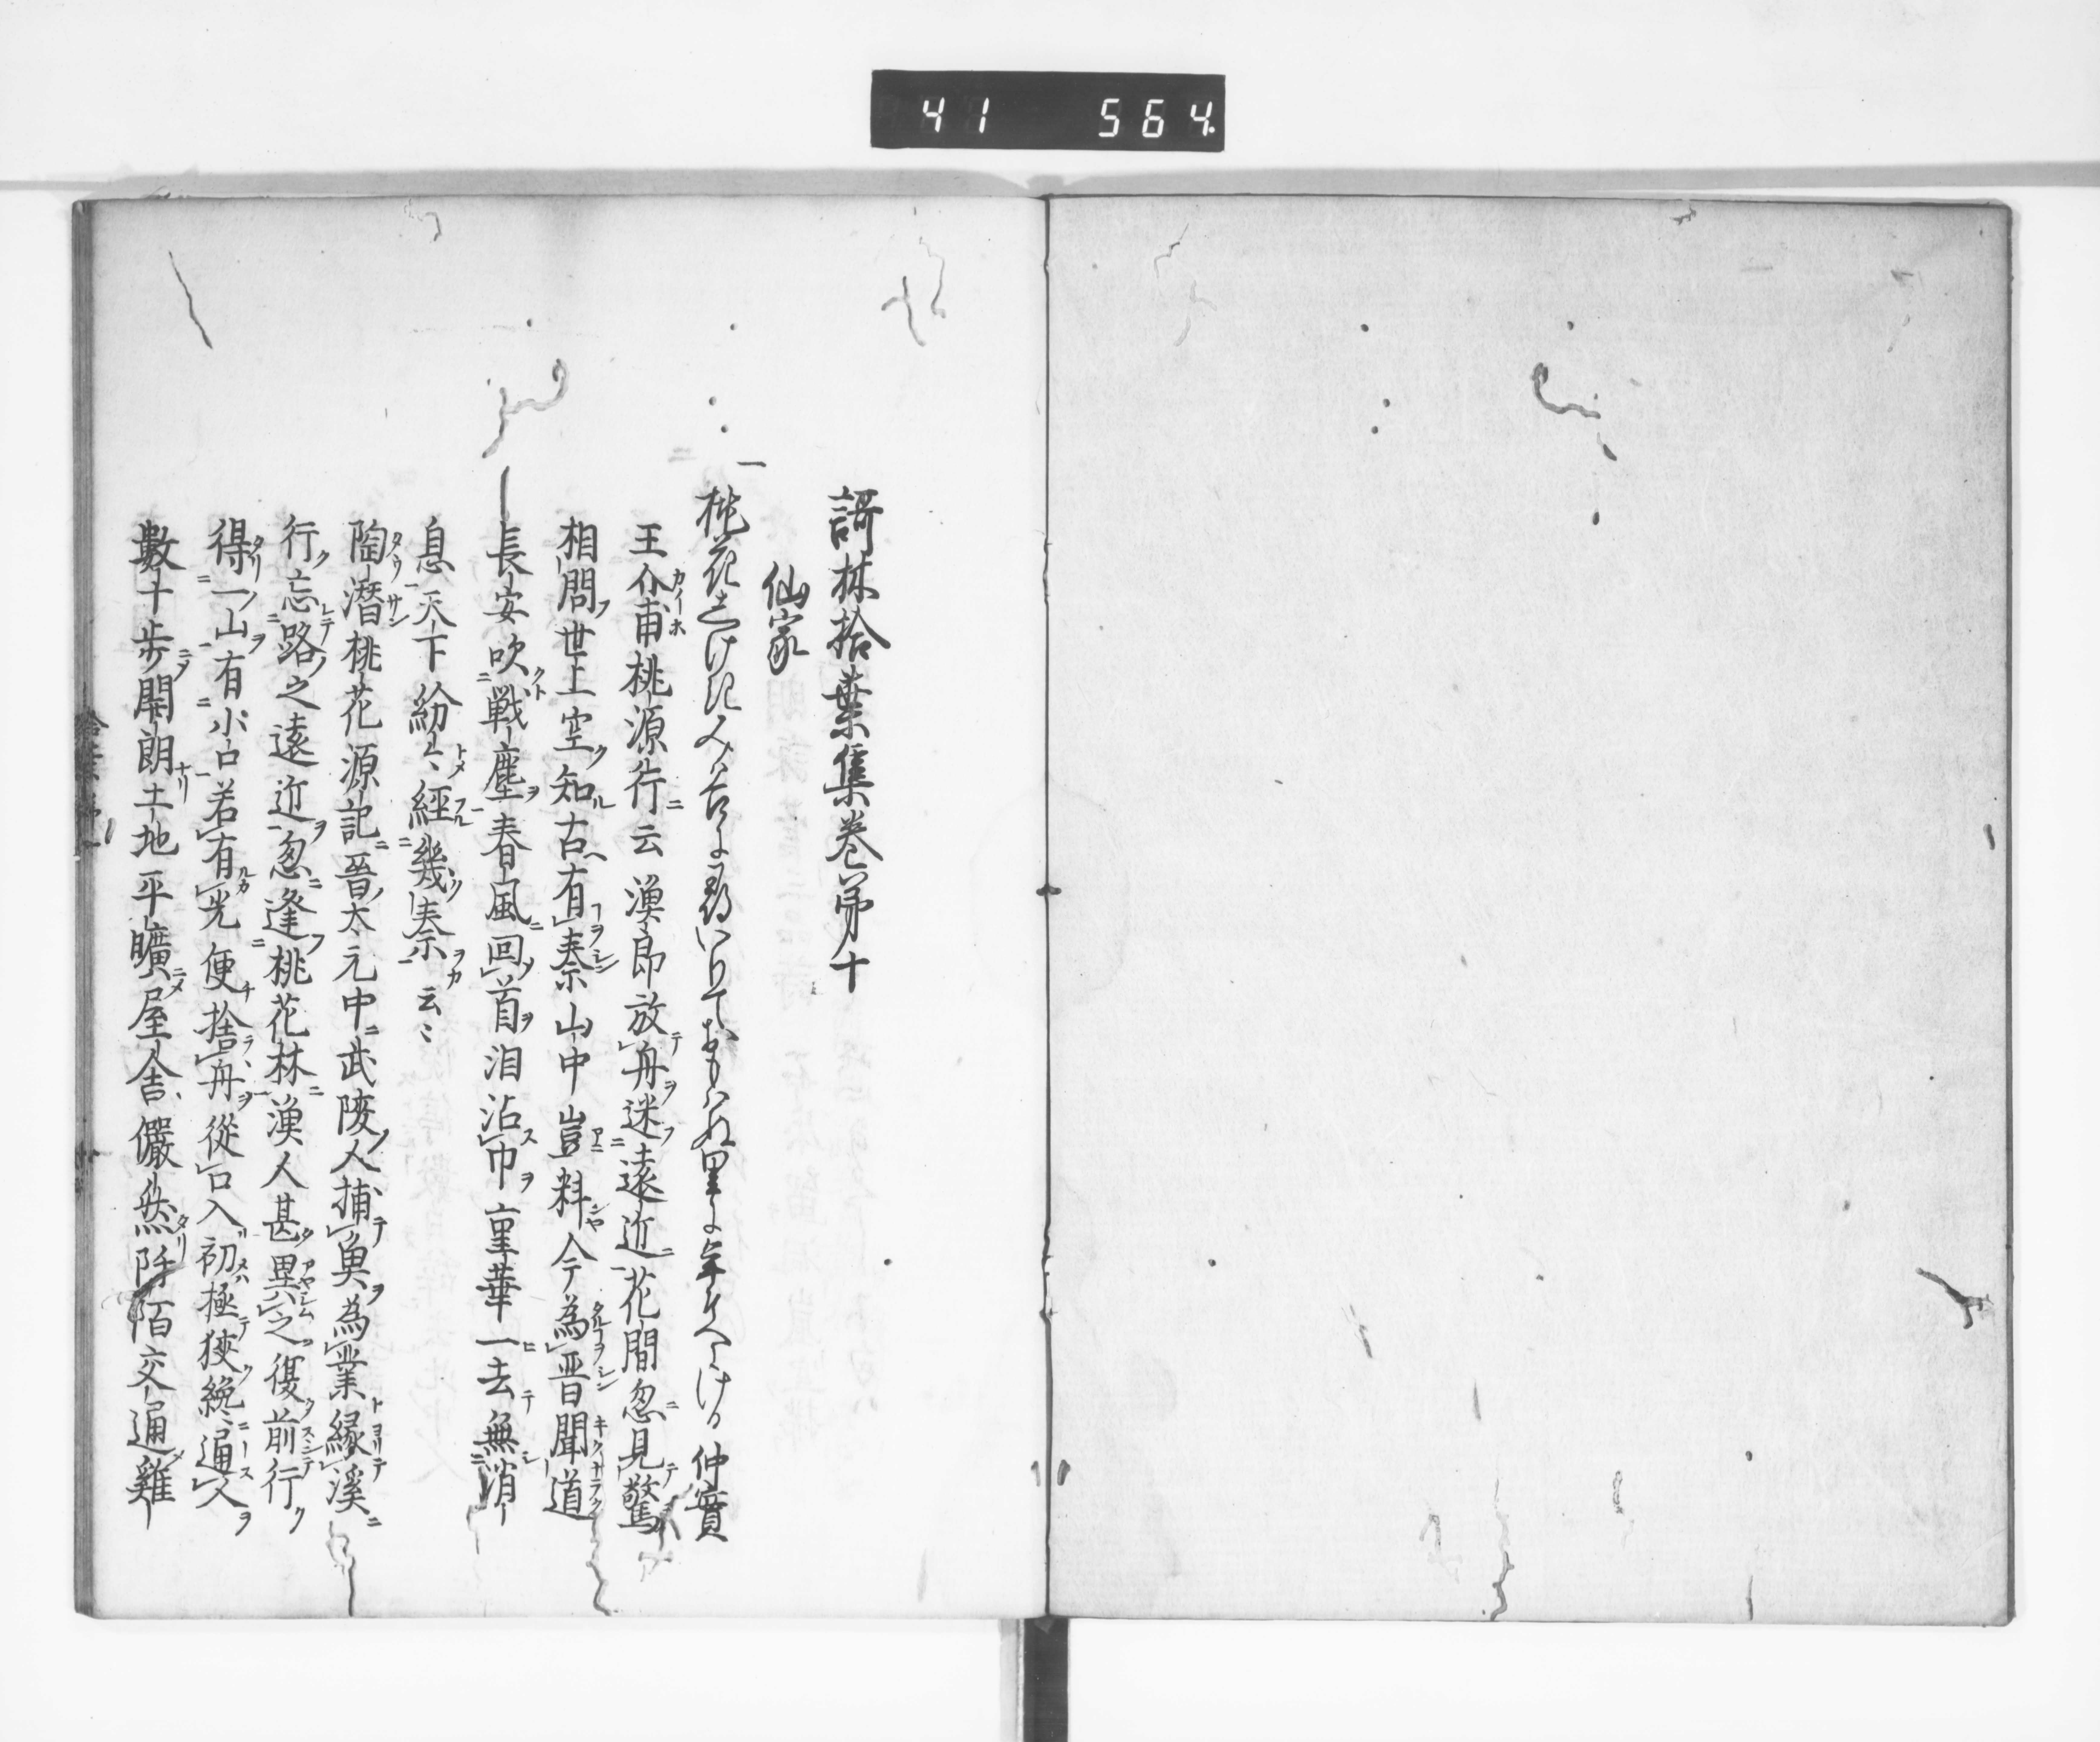 41 564
謌林拾葉集巻第十
仙家
一 桃花さけはみかさよ尋いりておもはぬ里に年そへにける 仲實
王介甫桃源行ニ云漁郎放舟迷遠近花間忽見驚
相問世上空知古有秦山中豈料今為晋聞道
長安吹戦塵春風回首泪沾巾重華一去無消
息天下紛々経幾秦云々
陶潜桃花源記ニ晋太元中武陵人捕魚為業縁溪
行忘路之遠近忽逢桃花林漁人甚異之復前行
得一山有小口若有光便捨舟從口入初極狭纔通人
數十歩開朗土地平曠屋舎儼然阡陌交通雞